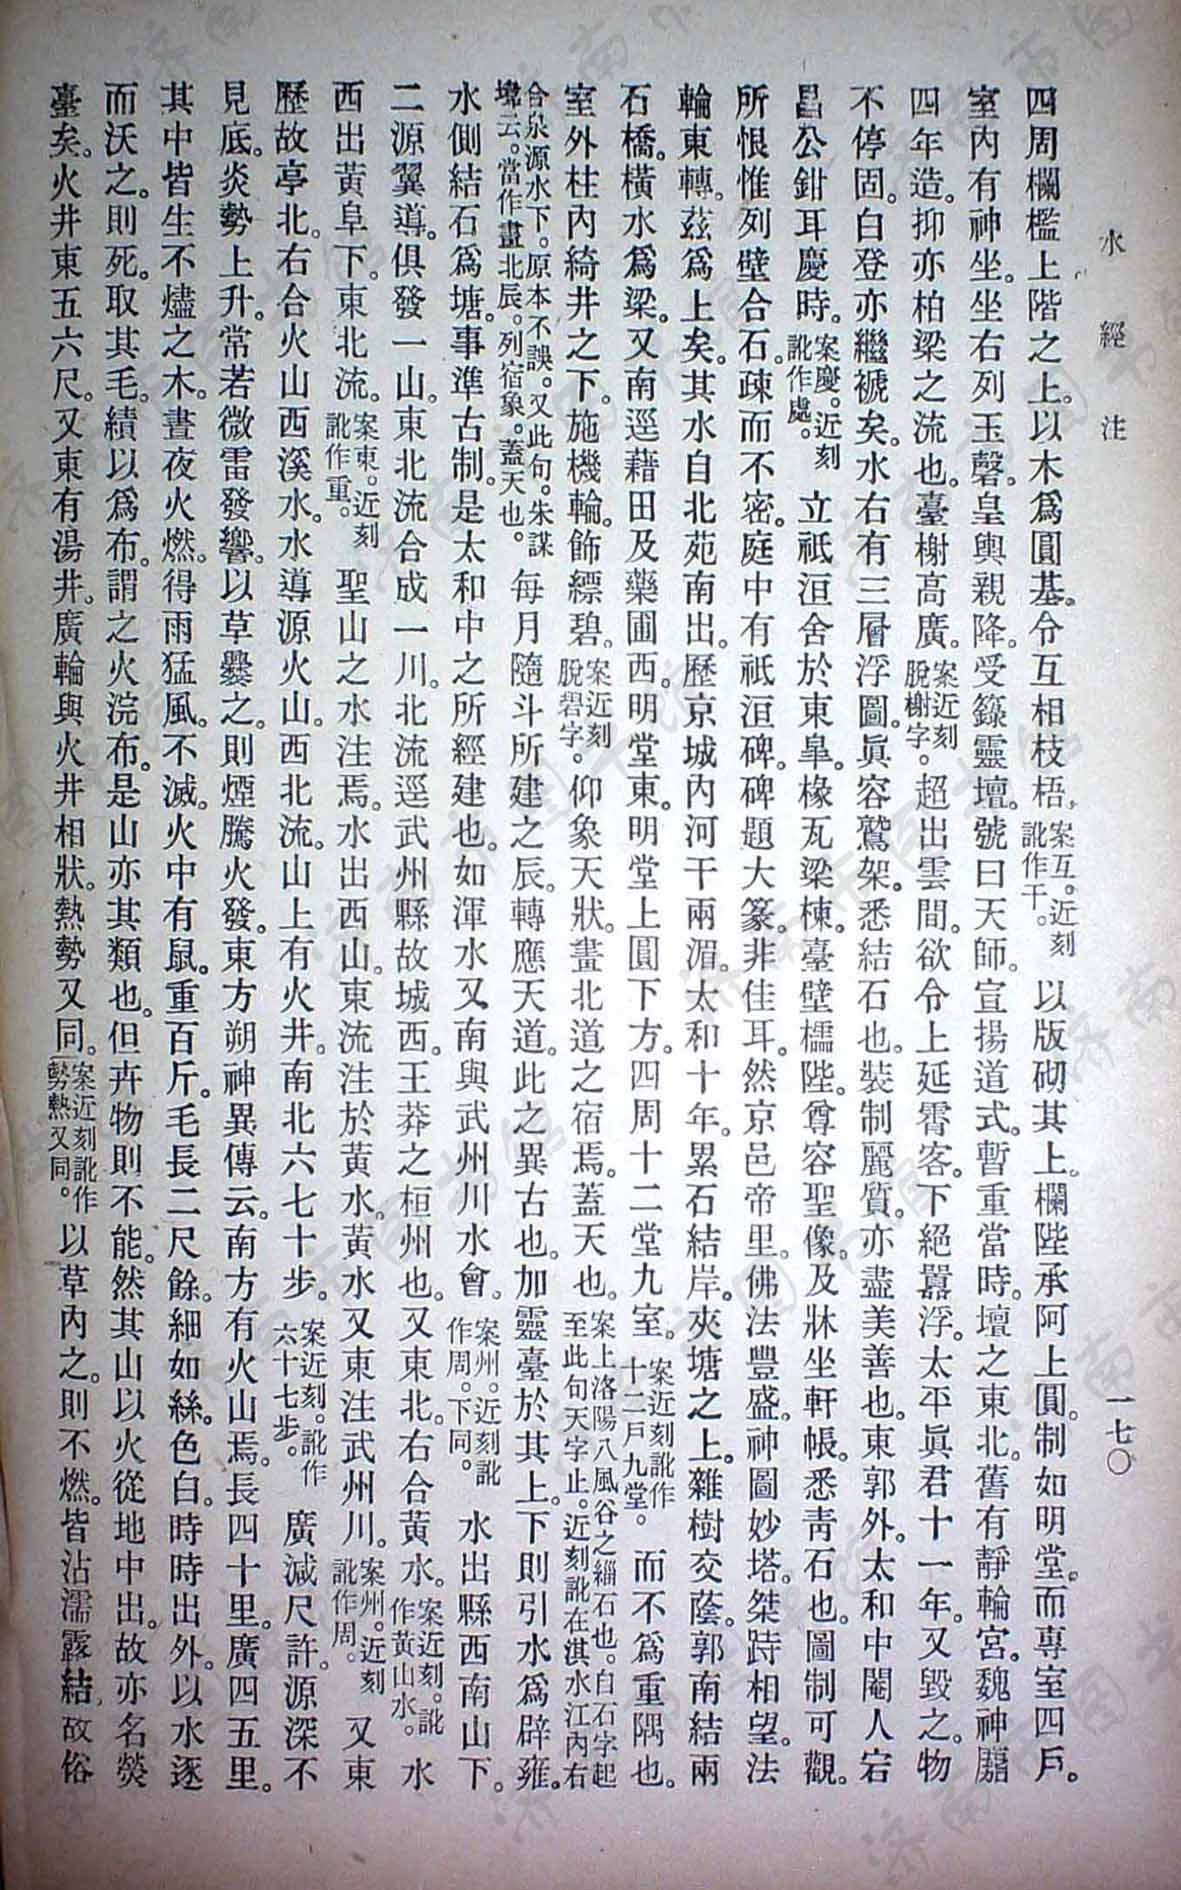 水經注
一七〇
四周欄檻上階之上。以木爲圓基。令互相枝梧。案互。近刻訛作干。以版砌其上。欄陛承阿上圓。制如明堂。而專室四戶。
室內有神坐。坐右列玉磬。皇輿親降。受籙靈壇。號曰天師。宣揚道式。暫重當時。壇之東北。舊有靜輪宮。魏神䴥
四年造。抑亦柏梁之流也。臺榭高廣。案近刻脫榭字。超出雲間。欲令上延霄客。下絕囂浮。太平眞君十一年。又毀之。物
不停固。白登亦繼褫矣。水右有三層浮圖。眞容鷲架。悉結石也。裝制麗質。亦盡美善也。東郭外。太和中閹人宕
昌公鉗耳慶時。案慶。近刻訛作處。立祇洹舍於東皐。椽瓦梁棟。臺壁櫺陛。尊容聖像。及牀坐軒帳。悉靑石也。圖制可觀。
所恨惟列壁合石。疎而不密。庭中有祇洹碑。碑題大篆。非佳耳。然京邑帝里。佛法豐盛。神圖妙塔。桀跱相望。法
輪東轉。茲爲上矣。其水自北苑南出。歷京城內河干兩湄。太和十年。累石結岸。夾塘之上。雜樹交蔭。郭南結兩
石橋。橫水爲梁。又南逕藉田及藥圃西。明堂東。明堂上圓下方。四周十二堂九室。案近刻訛作十二戶九堂。而不爲重隅也。
室外柱內綺井之下。施機輪。飾縹碧。案近刻脫碧字。仰象天狀。畫北道之宿焉。蓋天也。案上洛陽八風谷之緇石也。白石字起至此句天字止。近刻訛在淇水江內右
合泉源水下。原本不誤。又此句。朱謀㙔云。當作畫北辰。列宿象。蓋天也。每月隨斗所建之辰。轉應天道。此之異古也。加靈臺於其上。下則引水爲辟雍。
水側結石爲塘。事準古制。是太和中之所經建也。如渾水又南與武州川水會。案州。近刻訛作周。下同。水出縣西南山下。
二源翼導。俱發一山。東北流合成一川。北流逕武州縣故城西。王莽之桓州也。又東北。右合黃水。案近刻。訛作黃山水。水
西出黃阜下。東北流。案東。近刻訛作重。聖山之水注焉。水出西山。東流注於黃水。黃水又東注武州川。案州。近刻訛作周。又東
歷故亭北。右合火山西溪水。水導源火山。西北流。山上有火井。南北六七十步。案近刻。訛作六十七步。廣減尺許。源深不
見底。炎勢上升。常若微雷發響。以草爨之。則煙騰火發。東方朔神異傳云。南方有火山焉。長四十里。廣四五里。
其中皆生不燼之木。晝夜火燃。得雨猛風。不滅。火中有鼠。重百斤。毛長二尺餘。細如絲。色白。時時出外。以水逐
而沃之。則死。取其毛。績以爲布。謂之火浣布。是山亦其類也。但卉物則不能。然其山以火從地中出。故亦名熒
臺矣。火井東五六尺。又東有湯井。廣輪與火井相狀。熱勢又同。案近刻訛作勢熱又同。以草內之。則不燃。皆沾濡露結。故俗